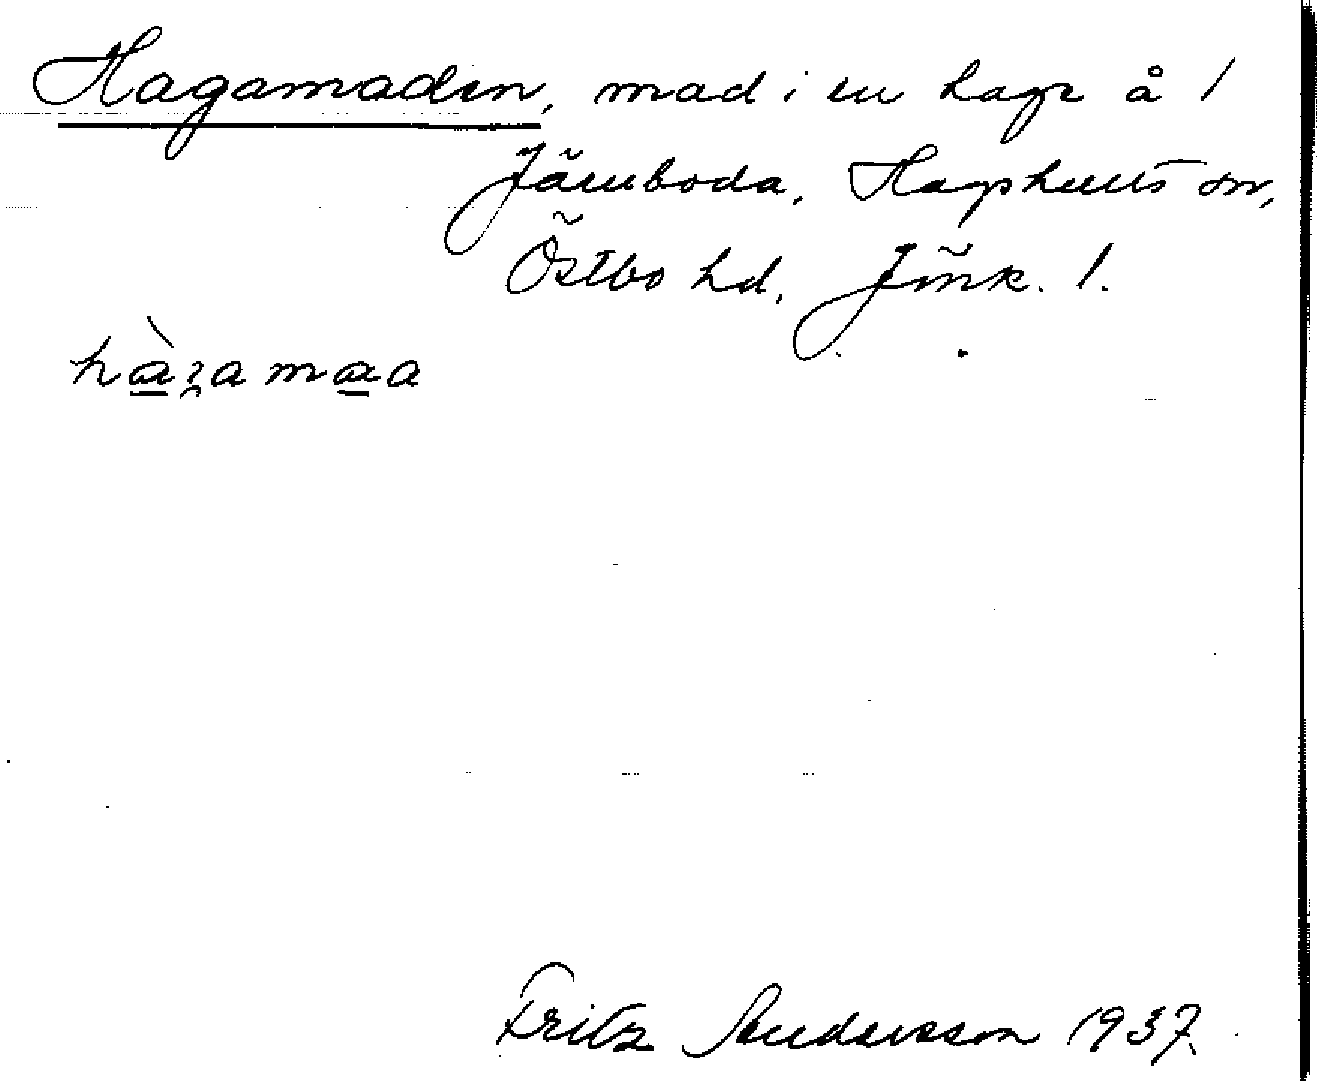 Hagamaden, mad i en hage å 1
Järnboda, Hagshults sn,
Östbo hd, Jönk. l.
hàgamaa
Fritz Andersson 1937.